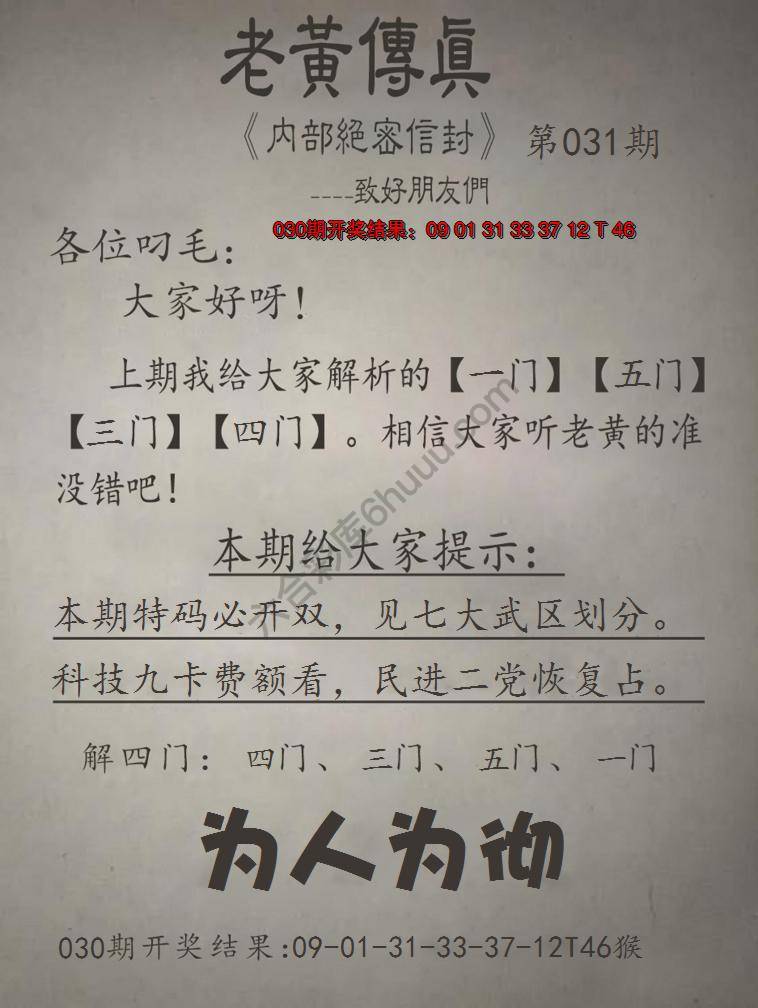 老黃傳眞
《内部絕密信封》 第031期
----致好朋友們
030期开奖结果：09 01 31 33 37 12 T 46
各位叼毛：
大家好呀！
上期我给大家解析的【一门】【五门】
【三门】【四门】。相信大家听老黄的准
没错吧！
本期给大家提示：
本期特码必开双，见七大武区划分。
科技九卡费额看，民进二党恢复占。
解四门： 四门、 三门、 五门、 一门
为人为彻
030期开奖结果:09-01-31-33-37-12T46猴
六合彩库6huuu.com